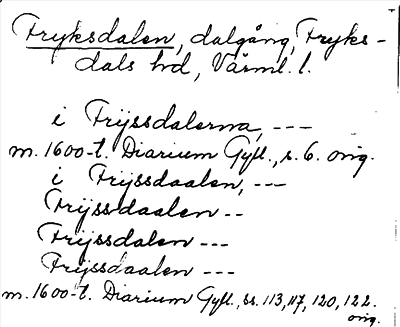 Fryksdalen, dalgång, Fryks-
dals hd, Värml. l.
i Frijssdalerna, ---
m. 1600-t. Diarium Gyll., s. 6. orig.
i Frijssdaalen, ---
Frijssdaalen --
Frijssdalen ---
Frijssdaalen ---
m. 1600-t. Diarium Gyll., ss. 113, 117, 120, 122.
orig.